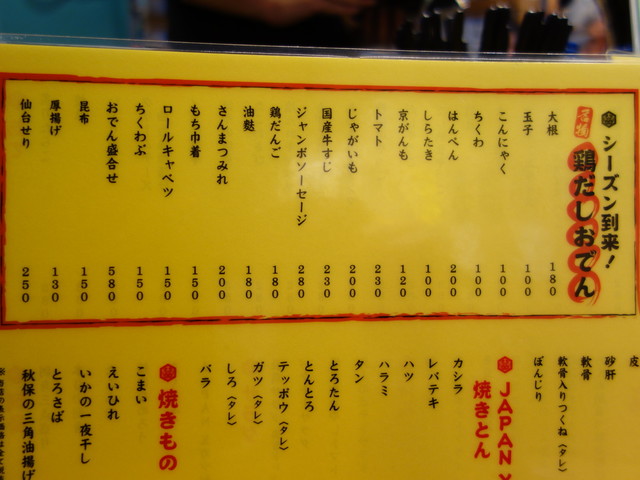 シーズン到来!
鶏だしおでん
大根 180
玉子 100
こんにゃく 100
ちくわ 100
はんぺん 200
しらたき 100
京がんも 120
トマト 230
じゃがいも 200
国産牛すじ 230
ジャンボソーセージ 280
鶏だんご 180
油麩 180
さんまつみれ 200
もち巾着 150
ロールキャベツ 150
ちくわぶ 150
おでん盛合せ 580
昆布 150
厚揚げ 130
仙台せり 250
皮
砂肝
軟骨
軟骨入りつくね(タレ)
ぼんじり
JAPAN X
焼きとん
カシラ
レバテキ
ハツ
ハラミ
タン
とろたん
とんとろ
テッポウ(タレ)
ガツ(タレ)
しろ(タレ)
バラ
焼きもの
こまい
えいひれ
いかの一夜干し
とろさば
秋保の三角油揚げ